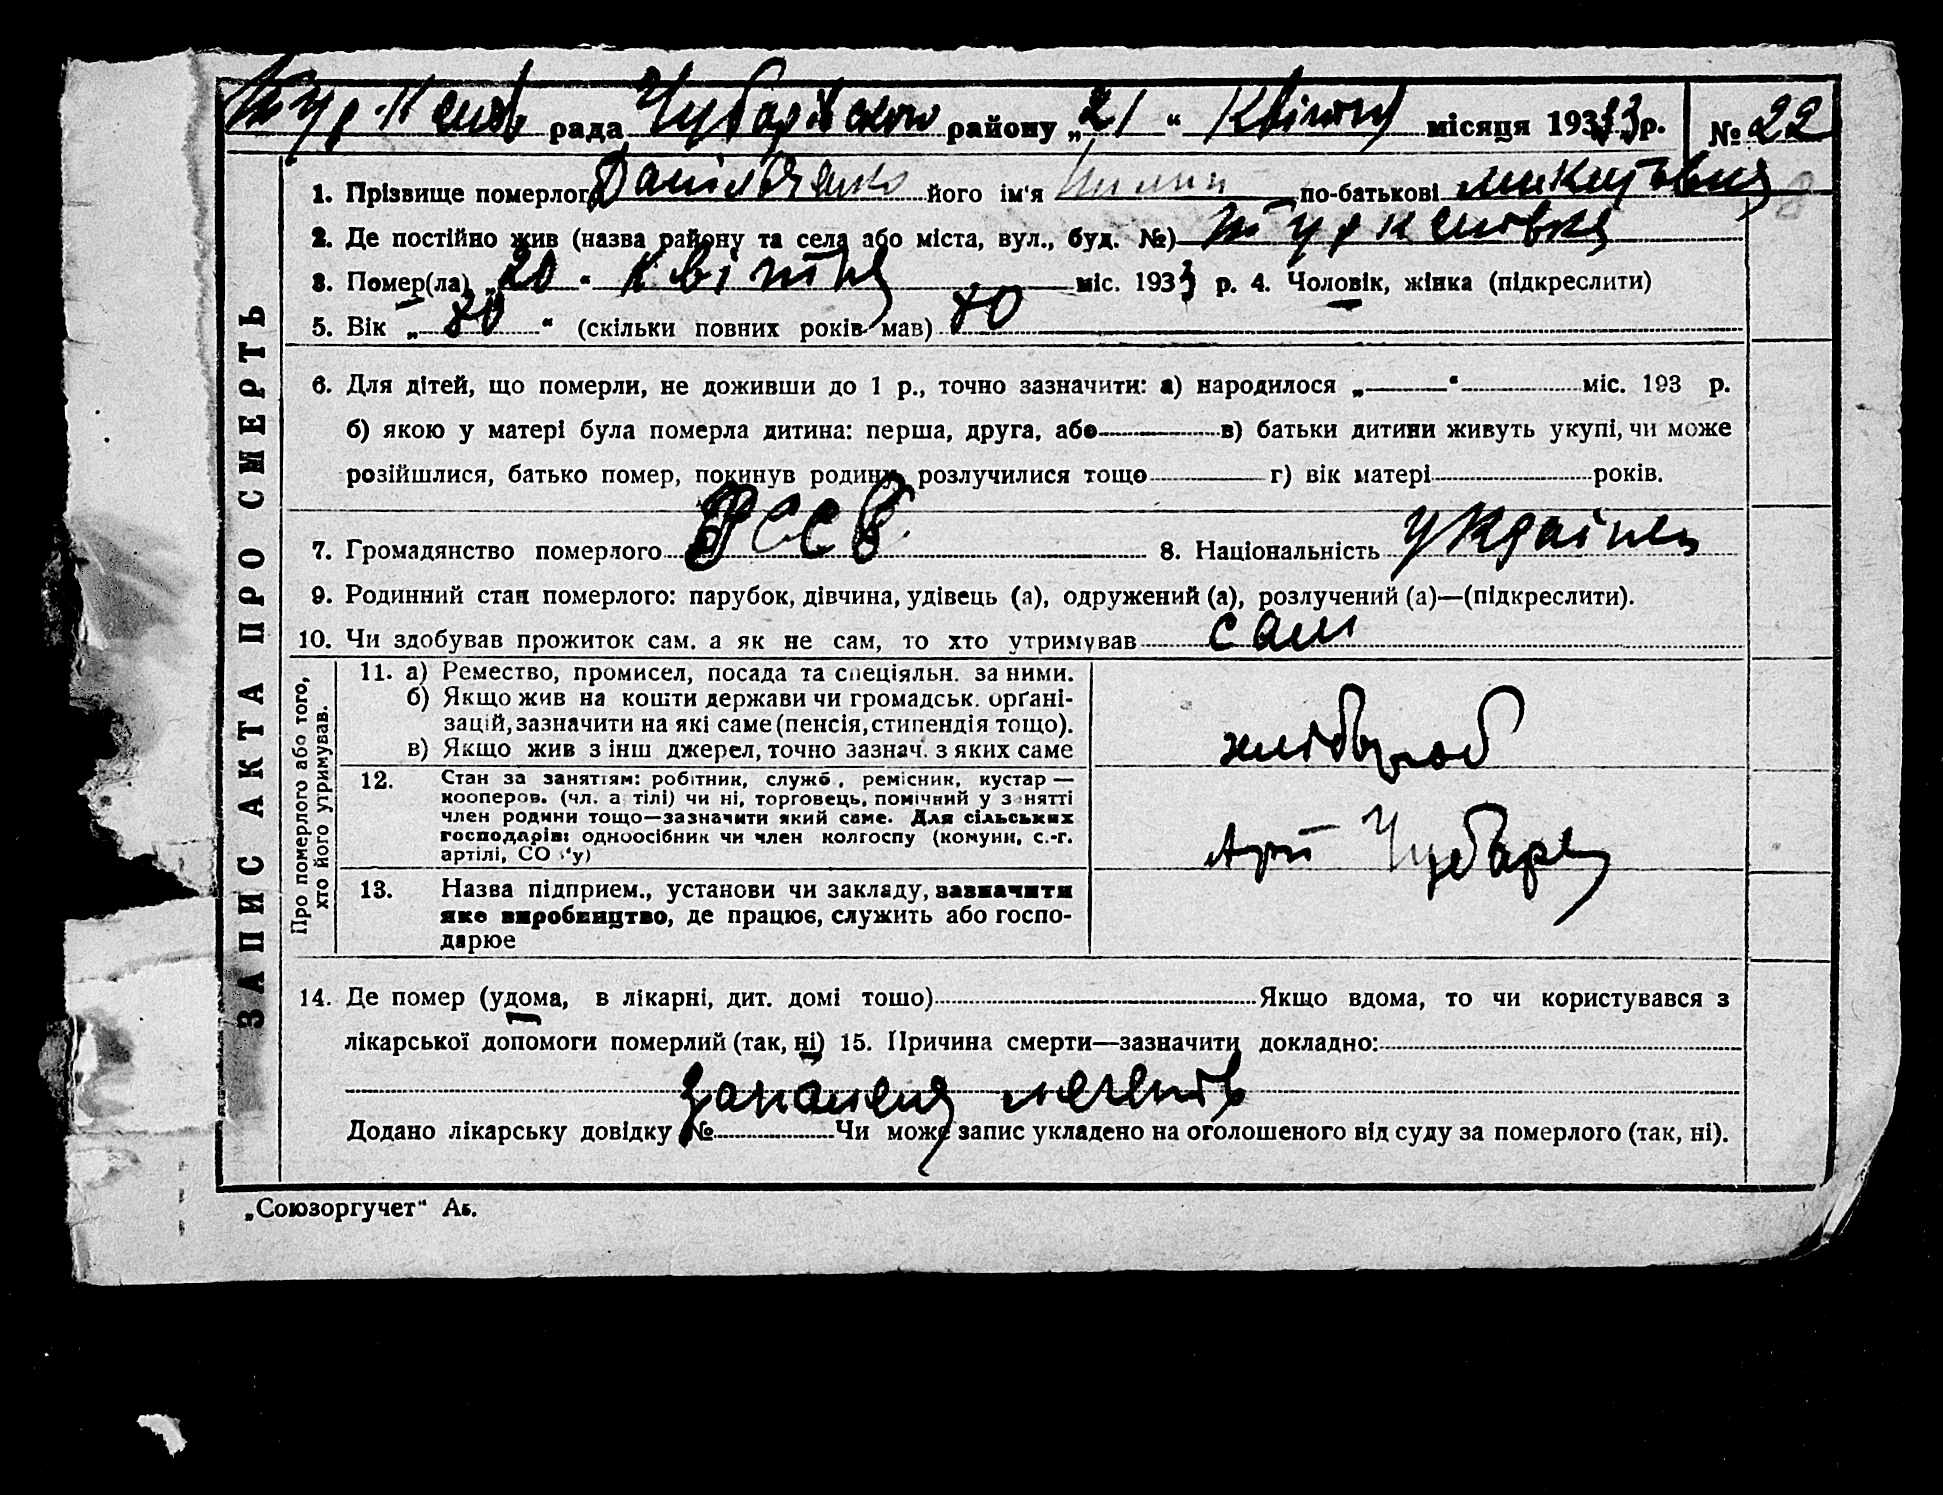 рада Чубарівского району „21“ Квітня місяця 1933 р. № 22
1. Прізвище померлог Данільченко його ім'я по-батькові Микитовия
2. Де постійно жив (назва району та села або міста, вул., буд. №)
3. Помер(ла) „20“ квітня міс. 1933 р. 4. Чоловік, жінка (підкреслити)
5. Вік „ “ (скільки повних років мав)
6. Для дітей, що померли, не доживши до 1 р., точно зазначити: а) народилося „ “ міс. 193 р.
б) якою у матері була померла дитина: перша, друга, або в) батьки дитини живуть укупі, чи може
розійшлися, батько помер, покинув родину, розлучилися тощо г) вік матері років.
7. Громадянство померлого 8. Національність Українец
9. Родинний стан померлого: парубок, дівчина, удівець (а), одружений (а), розлучений (а)—(підкреслити).
10. Чи здобував прожиток сам, а як не сам, то хто утримував сам
ЗАПИС АКТА ПРО СМЕРТЬ
Про померлого або того,
хто його утримував.
11. а) Ремество, промисел, посада та спеціяльн. за ними.
б) Якщо жив на кошти держави чи громадськ. орґані-
зацій, зазначити на які саме (пенсія, стипендія тощо).
в) Якщо жив з інш джерел, точно зазнач. з яких саме
хлібороб
12. Стан за занятіям: робітник, служб., ремісник, кустар —
кооперов. (чл. а тілі) чи ні, торговець, помічний у з нятті
член родини тощо—зазначити який саме. Для сільських
господарів: одноосібник чи член колгоспу (комуни, с.-г.
артілі, СО 'у)
Арт Чубаря
13. Назва підприєм., установи чи закладу, зазначити
яке виробництво, де працює, служить або госпо-
дарює
14. Де помер (удома, в лікарні, дит. домі тошо) Якщо вдома, то чи користувався з
лікарської допомоги померлий (так, ні) 15. Причина смерти—зазначити докладно:
запаленя легенів
Додано лікарську довідку № Чи може запис укладено на оголошеного від суду за померлого (так, ні).
„Союзоргучет“ Аг.